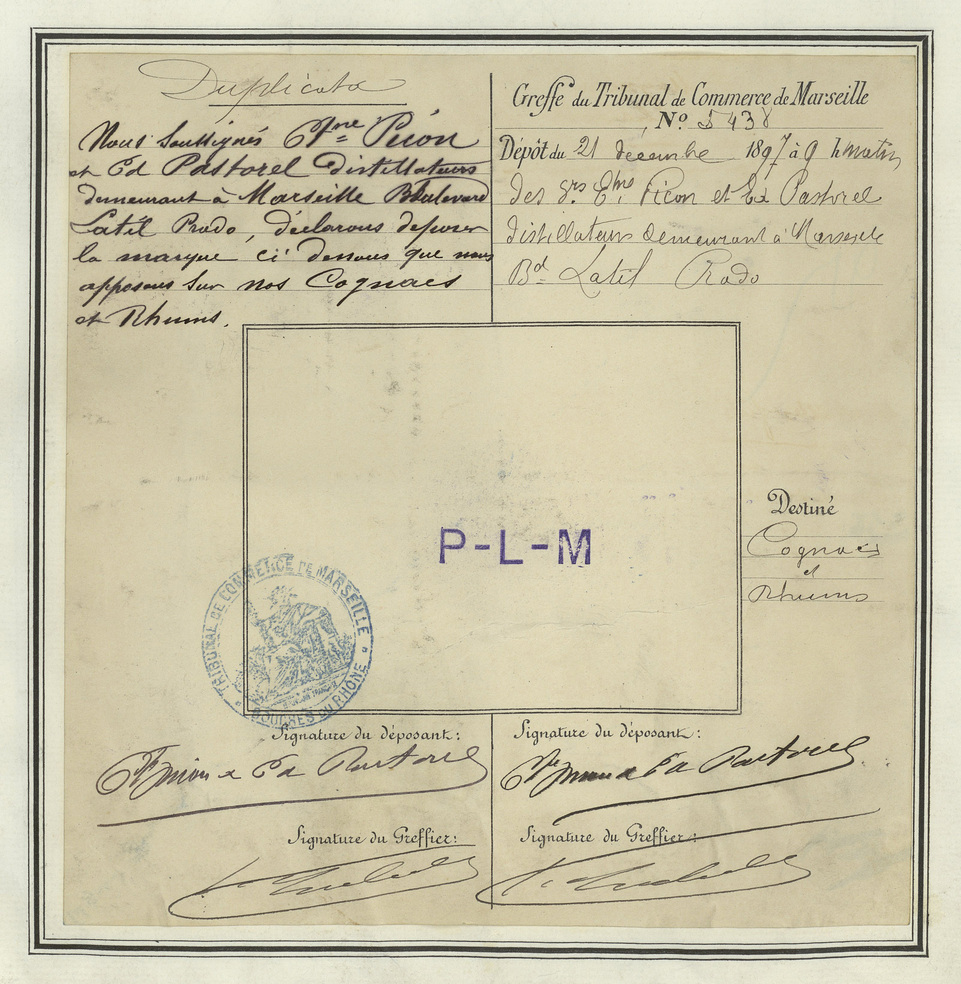 Duplicata
Nous soussignés Et.ne Picon
et Ed Pastorel distillateurs
demeurant à Marseille Boulevard
Latil Prado, déclarons déposer
la marque ci dessous que nous
apposons sur nos Cognacs
et Rhums.
Greffe du Tribunal de Commerce de Marseille
N° 5438
Dépôt du 21 decembre 1897 à 9 h matin
des Srs Picon et Ed Pastorel
distillateurs demeurant à Marseille
Bd Latil Prado
P-L-M
Destiné
Cognacs
et
Rhums
TRIBUNAL DE COMMERCE DE MARSEILLE
BOUCHES DU RHÔNE
Signature du déposant:
Picon & Ed Pastorel
Signature du déposant:
Picon & Ed Pastorel
Signature du Greffier:
Signature du Greffier: